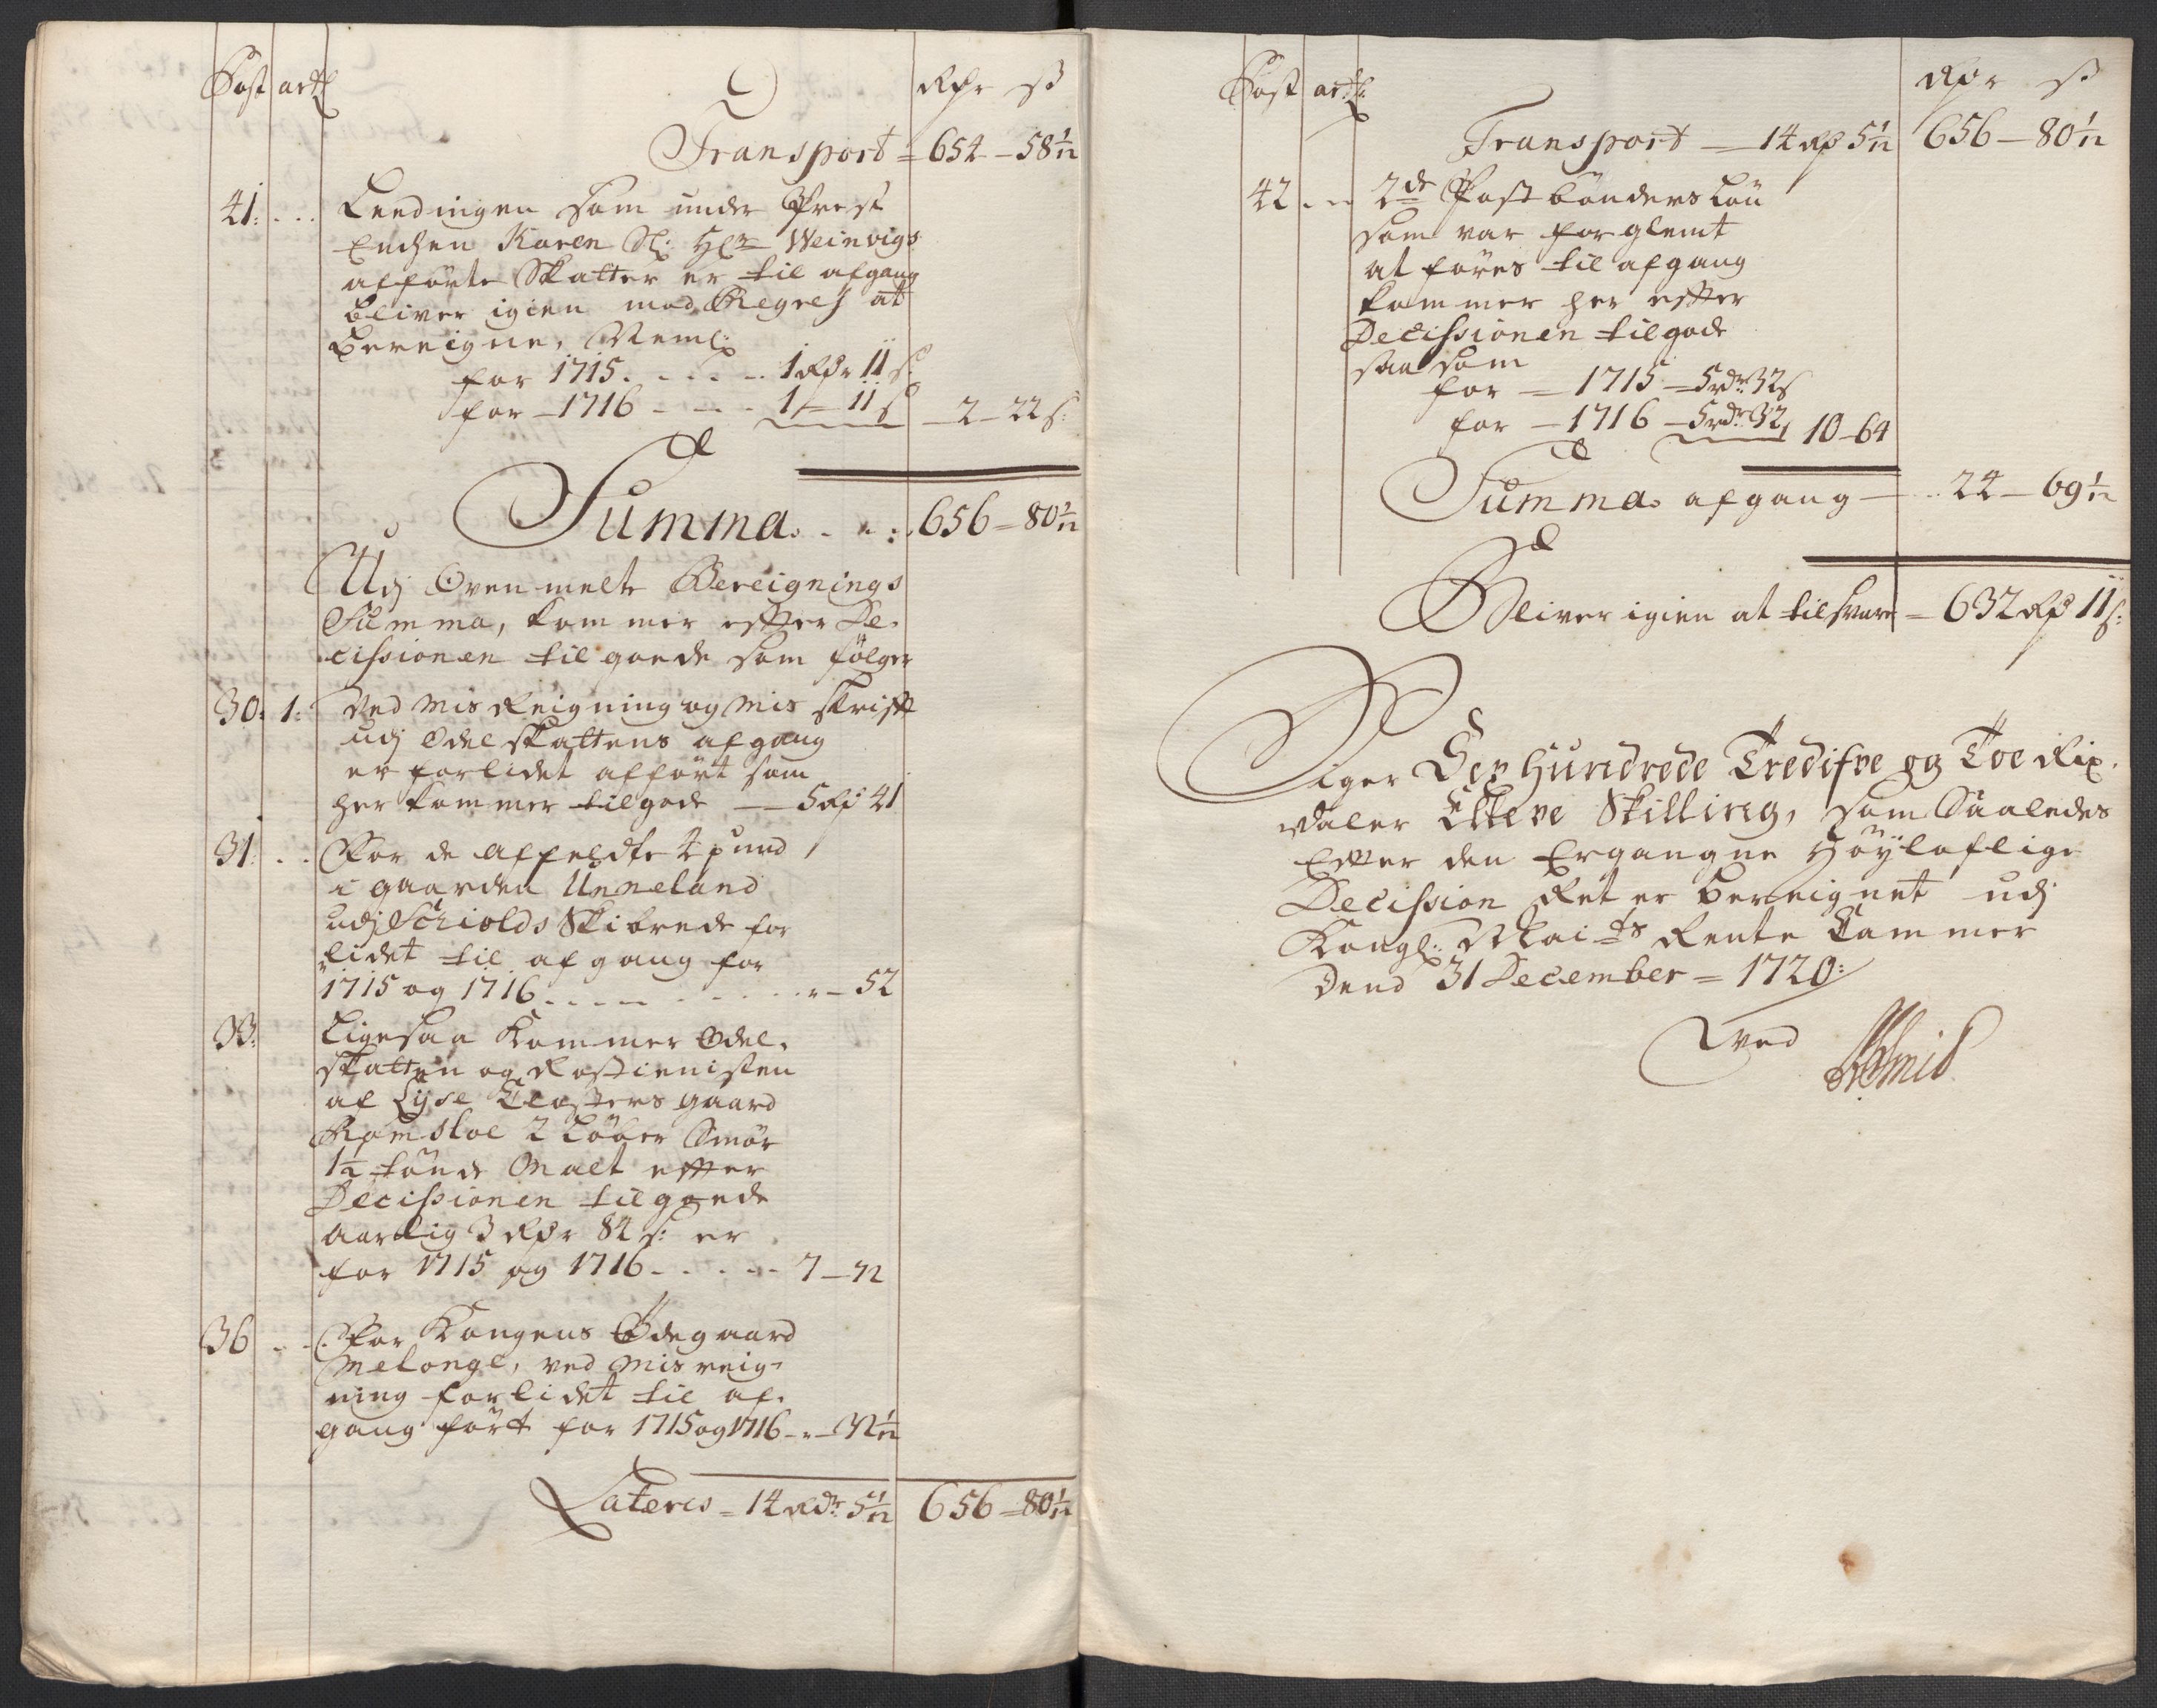 Post artl Rdr ß
Transport = 654 - 58 1/12
41: ... Leedingen som under Prest
Enchen Karen Sl: Hr: Weinvigs
afførte Skatter er til afgang
bliver igien mod Regres at
bereigne, Neml:
for 1715. - - - 1 Rdr 11 s
for - 1716 - - - 1 = 11 s - 2 - 22 s:
Summa. - - : 656 = 80 1/12
Udj Ovenmelte Bereignings
Summa, kommer efter De-
cissionen til goede som følger
30: 1: Ved Misreigning og Mis skrift
udj Odelskattens afgang
er forlidet afført som
her kommer tilgode - 5 Rd 41
31: - - For de affeldte 4 pund
i gaarden Unneland
udj Schiolds Skibrede for
lidet til afgang for
1715 og 1716 - - - - - - - 52
33: Ligesaa Kommer Odel-
skatten og Rostienisten
af Lyse Closters gaard
Ramsloe 2 Løber Smør
1 1/2 tønde Malt efter
Decissionen til goede
aarlig 3 Rdr 84 s: er
for 1715 og 1716 - - - - 7 - 72
36 - - For Kongens Ødegaard
Melonge, ved Misreig-
ning forlidet til af-
gang ført for 1715 og 1716 - - 32 1/12
Lateris = 14 Rdr 5 1/12 656 = 80 1/12
Post artl: Rdr ß
Transport - 14 Rd 5 1/12 656 - 80 1/12
42 - - 2de Postbønders Løn
som var forglemt
at føres til afgang
kommer her efter
Decissionen tilgode
saa som
for = 1715 - 5 rdr 32 s
for - 1716 - 5 rdr 32 10 - 64
Summa afgang - 24 - 69 1/12
Bliver igien at tilsvare = 632 Rd 11 s:
Siger Sex Hundrede Tredifve og Toe Rix-
daler Elleve Skilling, som Saaledes
Efter den Ergangne Høyloflige
Decission Ret er bereignet udj
Kongl: Mai:ts Rente Cammer
Dend 31 December = 1720:
Ved